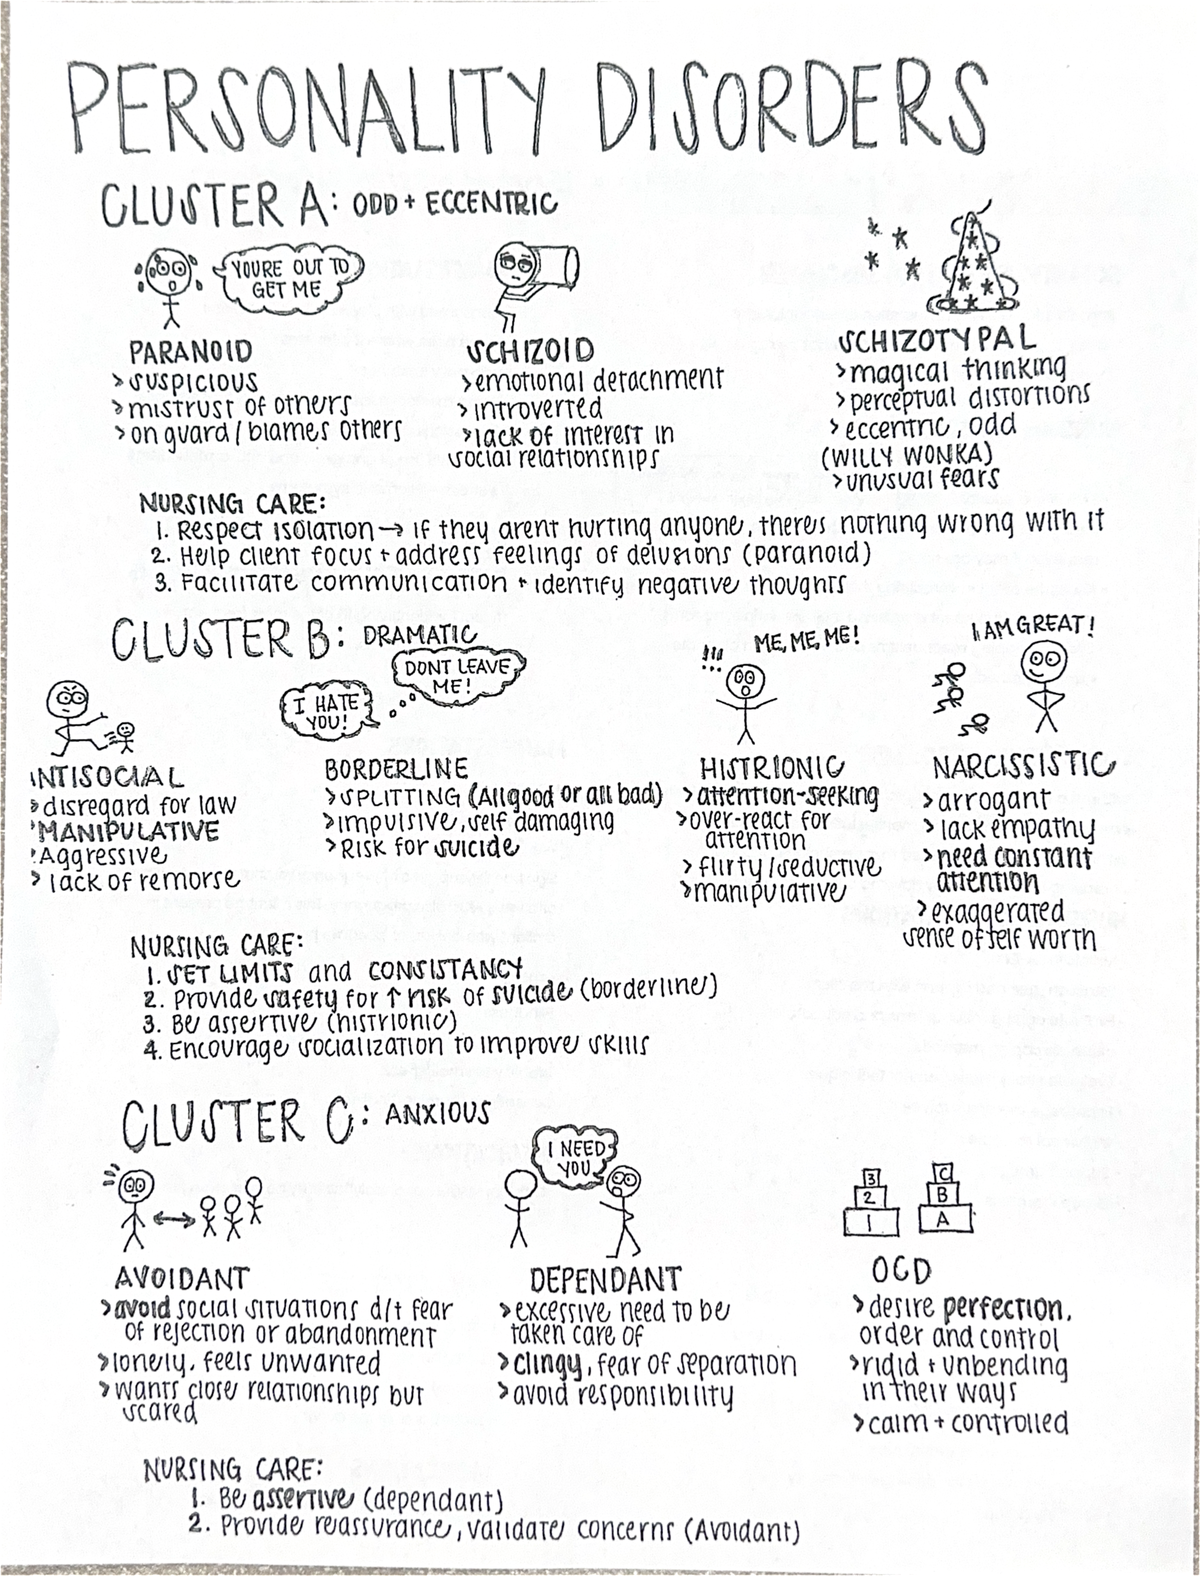 PERSONALITY DISORDERS
CLUSTER A: ODD + ECCENTRIC
YOURE OUT TO
GET ME
PARANOID
> SUSPICIOUS
> mistrust of others
> on guard / blames others
SCHIZOID
> emotional detachment
> introverted
> lack of interest in
social relationships
SCHIZOTYPAL
> magical thinking
> perceptual distortions
> eccentric, odd
(WILLY WONKA)
> unusual fears
NURSING CARE:
1. Respect isolation → if they arent hurting anyone, theres nothing wrong with it
2. Help client focus + address feelings of delusions (paranoid)
3. Facilitate communication + identify negative thoughts
CLUSTER B: DRAMATIC
I HATE
YOU!
DONT LEAVE
ME!
!!!
ME, ME, ME!
I AM GREAT!
INTISOCIAL
> disregard for law
> MANIPULATIVE
> Aggressive
> lack of remorse
BORDERLINE
> SPLITTING (All good or all bad)
> impulsive, self damaging
> Risk for suicide
HISTRIONIC
> attention-seeking
> over-react for
attention
> flirty / seductive
> manipulative
NARCISSISTIC
> arrogant
> lack empathy
> need constant
attention
> exaggerated
sense of self worth
NURSING CARE:
1. SET LIMITS and CONSISTANCY
2. Provide safety for ↑ risk of suicide (borderline)
3. Be assertive (histrionic)
4. Encourage socialization to improve skills
CLUSTER C: ANXIOUS
I NEED
YOU
3
2
1
C
B
A
AVOIDANT
> avoid social situations d/t fear
of rejection or abandonment
> lonely, feels unwanted
> wants close relationships but
scared
DEPENDANT
> excessive need to be
taken care of
> clingy, fear of separation
> avoid responsibility
OCD
> desire perfection,
order and control
> ridid + unbending
in their ways
> calm + controlled
NURSING CARE:
1. Be assertive (dependant)
2. Provide reassurance, validate concerns (Avoidant)